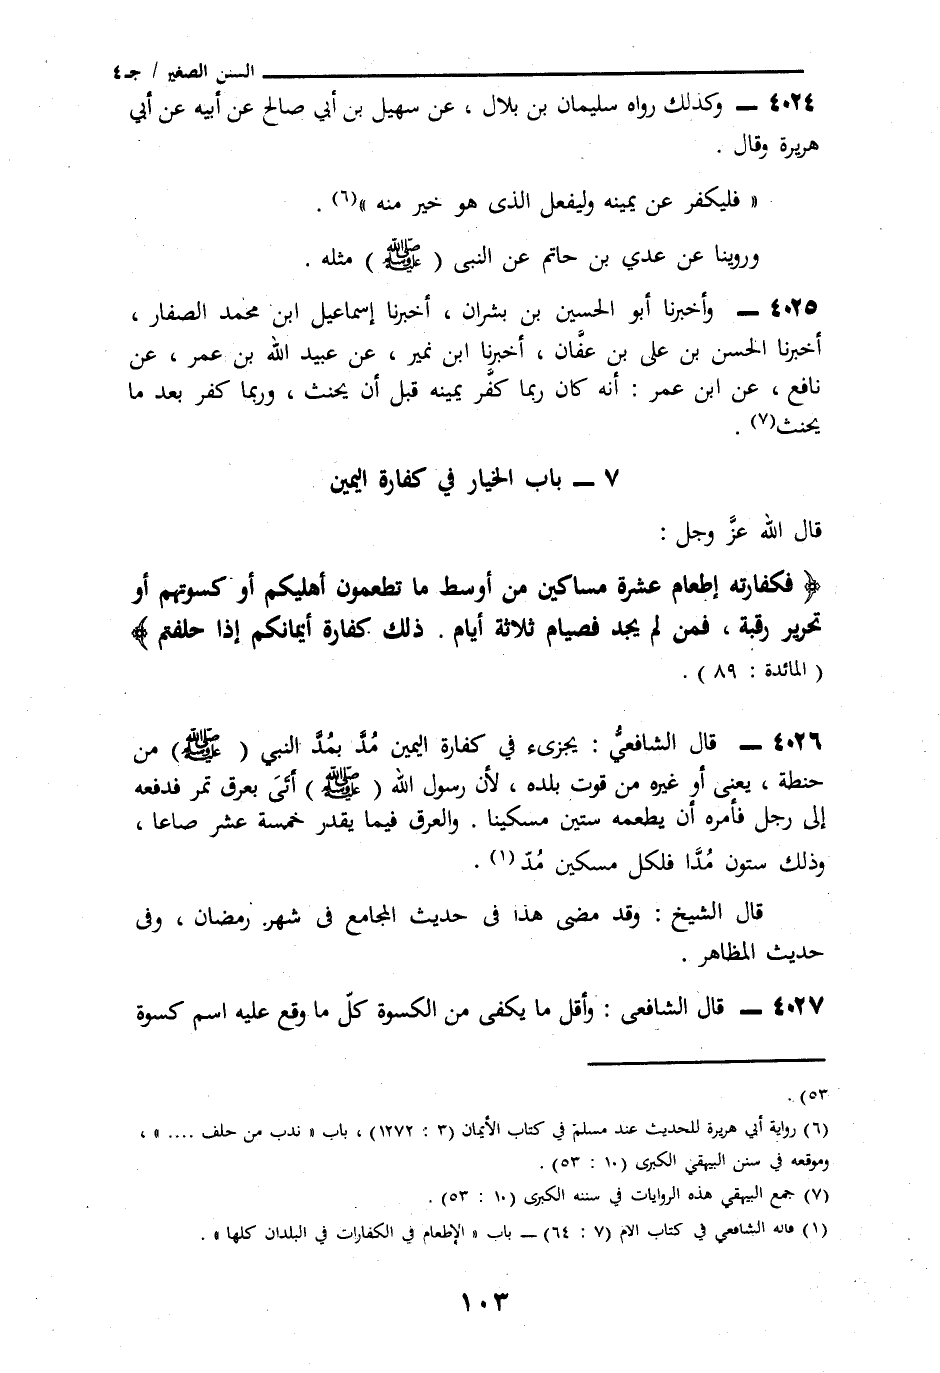 السنن الصغير / جـ٤
٤٠٢٤ ــ وكذلك رواه سليمان بن بلال ، عن سهيل بن أبي صالح عن أبيه عن أبي
هريرة وقال .
« فليكفر عن يمينه وليفعل الذى هو خير منه »(٦) .
وروينا عن عدي بن حاتم عن النبى ( ﷺ ) مثله .
٤٠٢٥ ــ وأخبرنا أبو الحسين بن بشران ، أخبرنا إسماعيل ابن محمد الصفار ،
أخبرنا الحسن بن على بن عفَّان ، أخبرنا ابن نمير ، عن عبيد الله بن عمر ، عن
نافع ، عن ابن عمر : أنه كان ربما كفَّر يمينه قبل أن يحنث ، وربما كفر بعد ما
يحنث(٧) .
٧ ــ باب الخيار في كفارة اليمين
قال الله عزَّ وجل :
﴿ فكفارته إطعام عشرة مساكين من أوسط ما تطعمون أهليكم أو كسوتهم أو
تحرير رقبة ، فمن لم يجد فصيام ثلاثة أيام . ذلك كفارة أيمانكم إذا حلفتم ﴾
( المائدة : ٨٩ ) .
٤٠٢٦ ــ قال الشافعيُّ : يجزىء في كفارة اليمين مُدَّ بمُدَّ النبي ( ﷺ ) من
حنطة ، يعنى أو غيره من قوت بلده ، لأن رسول الله ( ﷺ ) أَتَىَ بعرق تمر فدفعه
إلى رجل فأمره أن يطعمه ستين مسكينا . والعرق فيما يقدر خمسة عشر صاعا ،
وذلك ستون مُدَّا فلكل مسكين مُدّ (١) .
قال الشيخ : وقد مضى هذا فى حديث المجامع فى شهر رمضان ، وفى
حديث المظاهر .
٤٠٢٧ ــ قال الشافعى : وأقل ما يكفى من الكسوة كلّ ما وقع عليه اسم كسوة
٥٣) .
(٦) رواية أبي هريرة للحديث عند مسلم في كتاب الأيمان (٣ : ١٢٧٢) ، باب « ندب من حلف .... » ،
وموقعه في سنن البيهقي الكبرى (١٠ : ٥٣) .
(٧) جمع البيهقي هذه الروايات في سننه الكبرى (١٠ : ٥٣) .
(١) قاله الشافعي في كتاب الام (٧ : ٦٤) ــ باب « الإطعام في الكفارات في البلدان كلها » .
١٠٣